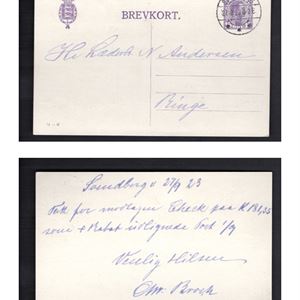 BREVKORT.
Hr Læderh. N. Andersen
Ringe
Svendborg 27/9 23
Tak for modtagen Check paa K 181,35
som + Rabat udlignede Post 1/9
Venlig Hilsen
Chr. Broch